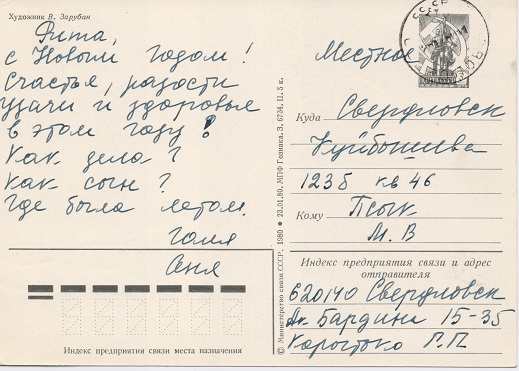 Художник В. Зарубин
Рита,
с Новым годом!
Счастья, радости
удачи и здоровья
в этом году!
Как дела?
Как сын?
Где была летом.
Галя
Аня
Индекс предприятия связи места назначения
© Министерство связи СССР. 1980 • 23.01.80. МПФ Гознака. З. 6734. Ц. 5 к.
СССР
Местное
Куда Свердловск
Куйбышева
123б кв 46
Кому Псык
М. В
Индекс предприятия связи и адрес
отправителя
620140 Свердловск
Ак. Бардина 15-35
Г. П